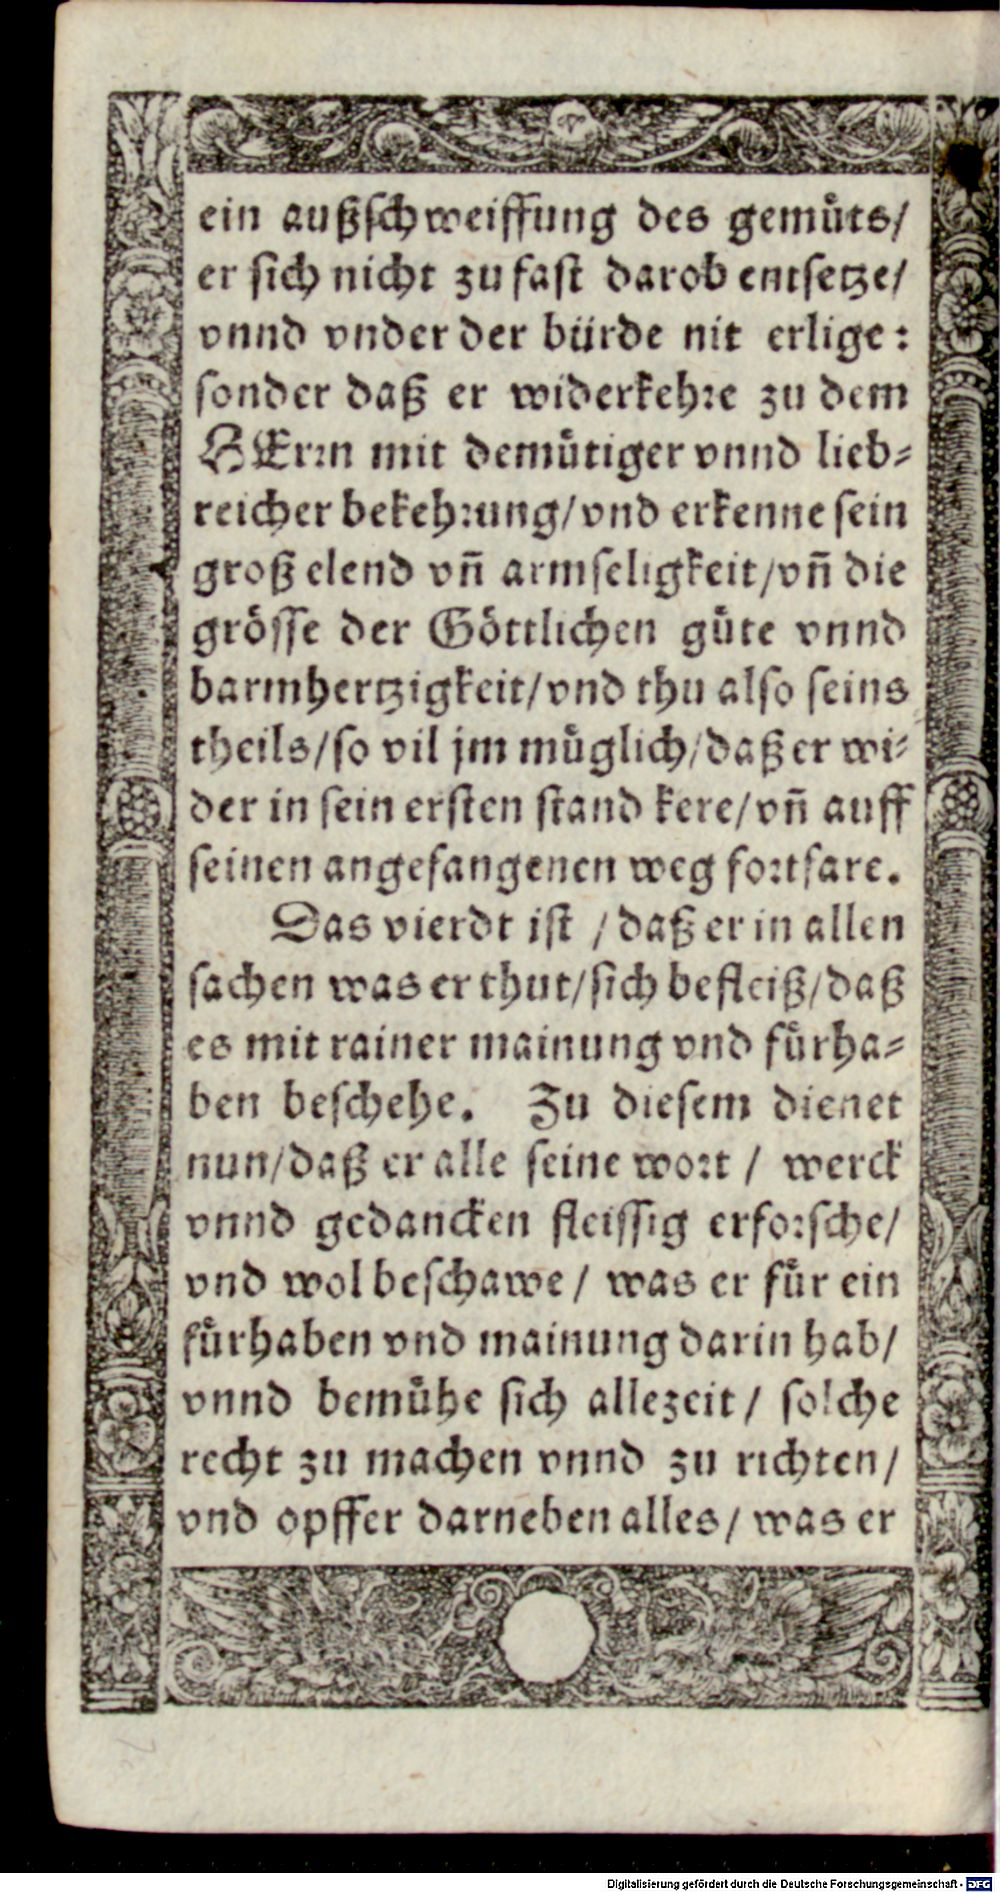 ein außschweiffung des gemüts/
er sich nicht zu fast darob entsetze/
vnnd vnder der bürde nit erlige:
sonder daß er widerkehre zu dem
HErrn mit demütiger vnnd lieb⸗
reicher bekehrung/vnd erkenne sein
groß elend vn̄ armseligkeit/vn̄ die
grösse der Göttlichen güte vnnd
barmhertzigkeit/vnd thu also seins
theils/so vil jm müglich/daß er wi⸗
der in sein ersten stand kere/vn̄ auff
seinen angefangenen weg fortfare.
Das vierdt ist / daß er in allen
sachen was er thut/sich befleiß/daß
es mit rainer mainung vnd fürha⸗
ben beschehe. Zu diesem dienet
nun/daß er alle seine wort / werck
vnnd gedancken fleissig erforsche/
vnd wol beschawe / was er für ein
fürhaben vnd mainung darin hab/
vnnd bemühe sich allezeit / solche
recht zu machen vnnd zu richten/
vnd opffer darneben alles/ was er
Digitalisierung gefördert durch die Deutsche Forschungsgemeinschaft - DFG